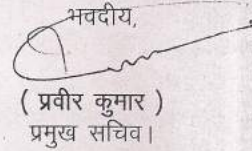 भवदीय,
( प्रवीर कुमार )
प्रमुख सचिव।